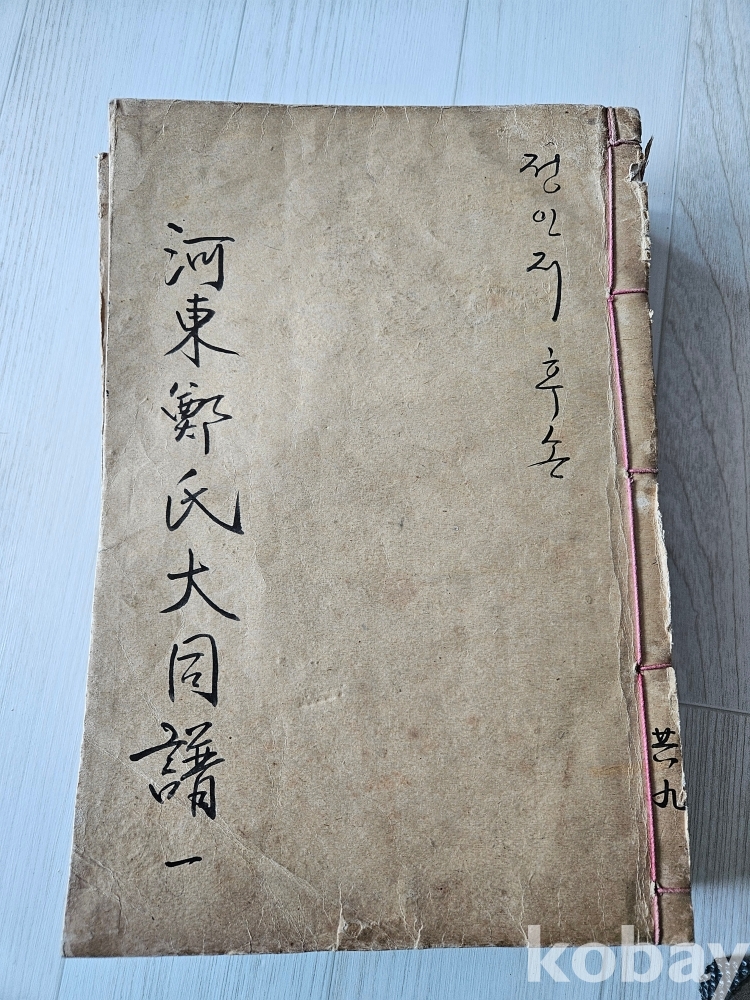 정인지 후손
河東鄭氏大同譜 一
共九
kobay